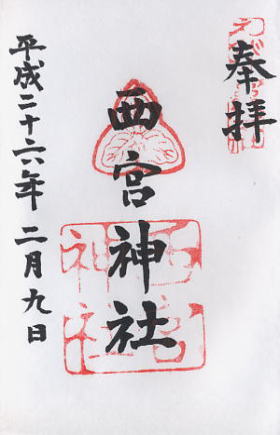 奉拝
西宮神社
平成二十六年二月九日
西宮
神社